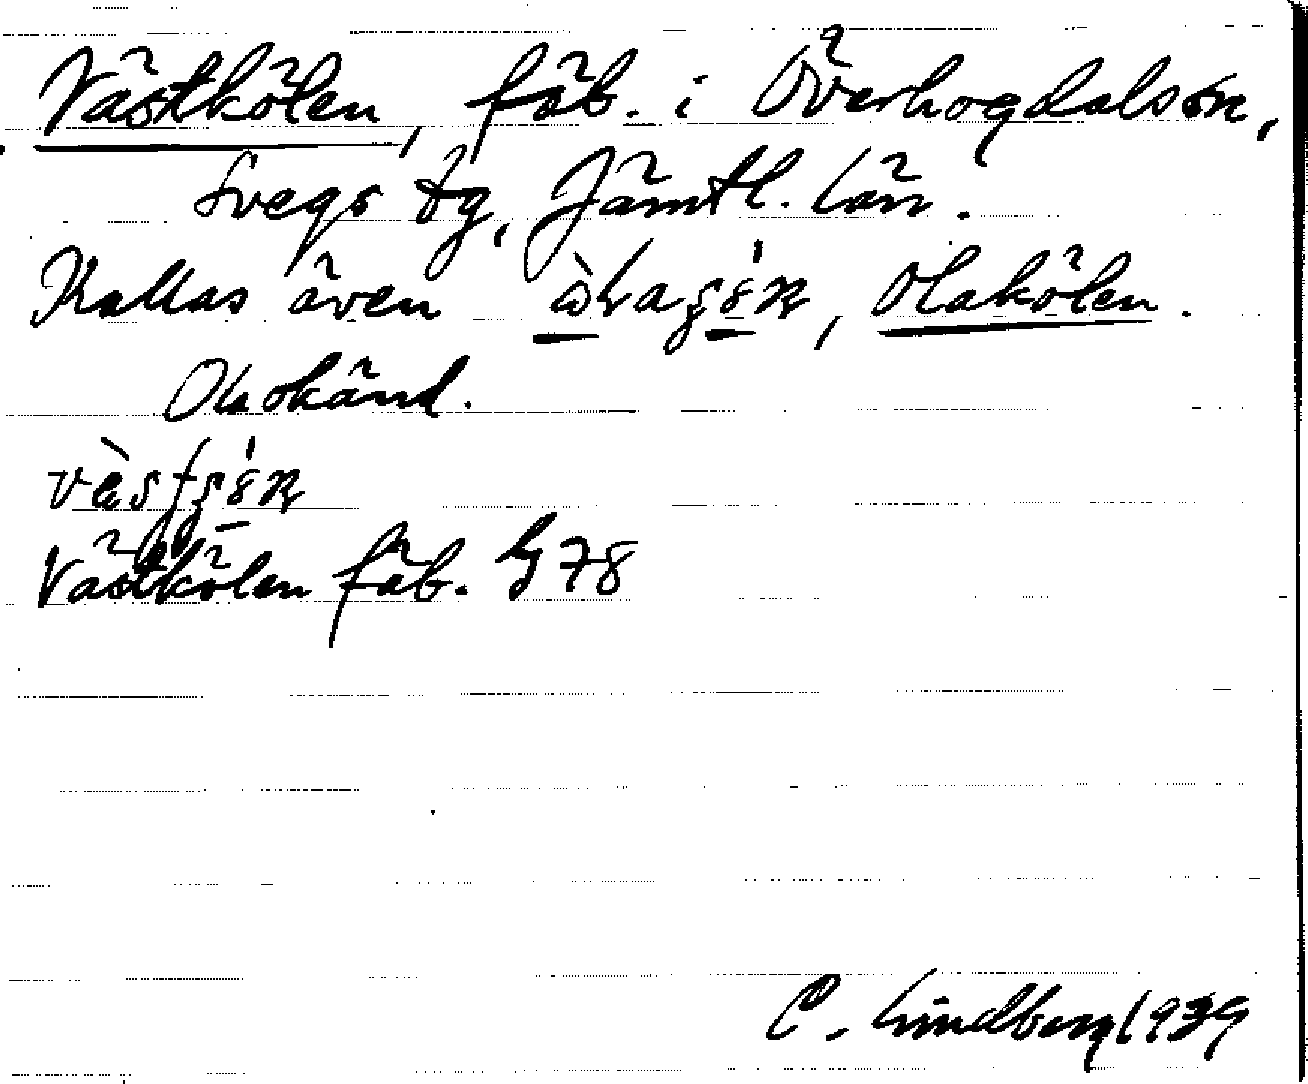 Västkölen, fäb. i Överhogdals sn,
Svegs tg, Jämtl. län.
Kallas även Olakölen.
Olsokänd.
Västkölen fäb. 78
C. Lindberg 1939